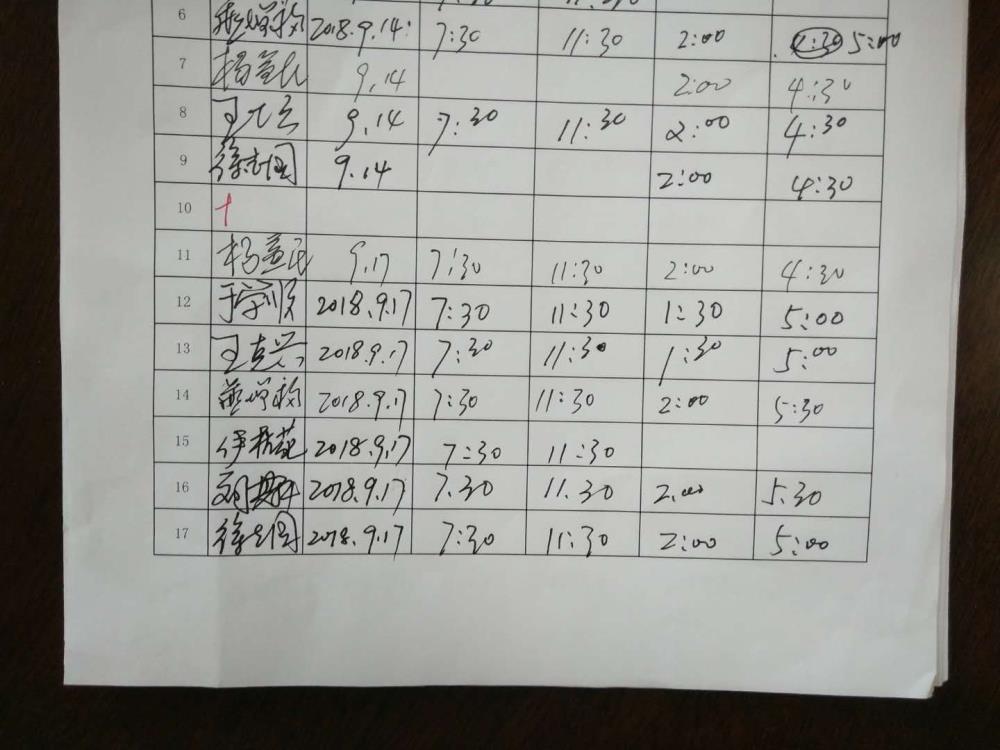 6 2018.9.14 7:30 11:30 2:00 4:30 5:00
7 杨宣民 9.14 2:00 4:30
8 9.14 7:30 11:30 2:00 4:30
9 徐志国 9.14 2:00 4:30
10
11 杨宣民 9.17 7:30 11:30 2:00 4:30
12 于学顺 2018.9.17 7:30 11:30 1:30 5:00
13 2018.9.17 7:30 11:30 1:30 5:00
14 2018.9.17 7:30 11:30 2:00 5:30
15 2018.9.17 7:30 11:30
16 2018.9.17 7.30 11.30 2.00 5.30
17 徐志国 2018.9.17 7:30 11:30 2:00 5:00